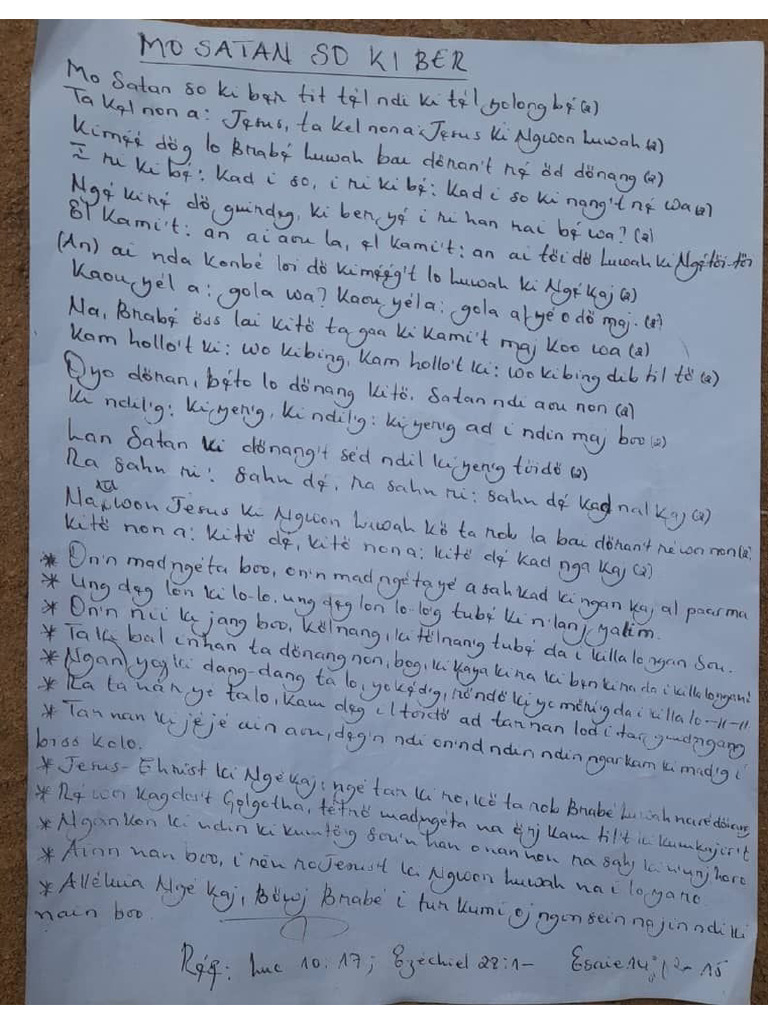 MO SATAN SO KI BER
Mo Satan so ki bęr tit tęl ndi ki tęl yolong bę (2)
Ta kęl non a: Jęsus, ta kel non a: Jęsus ki Ngwon Luwah (2)
Kimęę dög lo Brabę Luwah bau dönan't rę öd dönang (2)
I ri ki bę: kad i so, i ri ki bę: kad i so ki nang't rę wa (2)
Ngę kinę dö guindęg, ki ber, yę i ri han nai bę wa? (2)
ęl kami't: an ai aou la, ęl kami't: an ai töi dö Luwah ki Ngę töi-töi
(An) ai nda konbé loi dö kimęęg't lo Luwah ki Ngę kaj (2)
Kaou yél a: gola wa? Kaou yél a: gola al yé o dö maj. (2)
Na, Brabę öss lai kitö ta gaa ki kami't maj koo wa (2)
Kam hollo't ki: wo kibing, kam hollo't ki: wo kibing dib til tö (2)
Oyo dönan, bęto lo dönang kitö. Satan ndi aou non (2)
Ki ndil'g: ki yeng, ki ndil'g: ki yer'g ad i ndin maj boo (2)
Lan Satan ki dönang't sed ndil ki yer'g töidö (2)
Ra sahn ri: sahn dę, ra sahn ri: sahn dę kad nal kaj (2)
Na, Ngwon Jęsus ki Ngwon Luwah kö ta rob la bau dönan't rę wa non (2)
kitö non a: kitö dę, kitö non a: kitö dę kad nga kaj (2)
* On'n madngęta boo, on'n madngęta yé a sah kad ki ngan kaj al paarma
* Ung dęg lon ki lo-lo. ung dęg lon lo-lo'g tubę ki n'lanj yalim.
* On'n nii ki jang boo, kölnang, ki tölnan'g tubę da i killa longan Sou.
* Ta ki bal inhan ta dönang non, bog, ki kaya kina ki bęn kina da i killa longan
* Ngan yog ki dang-dang ta lo, yo kędig, röndö ki yo méhig da i killa lo -11-11
* Ra ta nan yę ta lo, kam dęg il töidö ad tan nan lod i tag gundngang
* Tan nan ki jéjé ain aou, dęg'n ndi on'nd ndin ndin ngar kam ki madig i
biss kolo.
* Jesus-Christ ki Ngę kaj; ngę tar ki ro, kö ta rob Brabę Luwah na rę dönang
* Rę won kagdei't Golgotha, tétrö madngęta na örj kam til't ki kumkajir't
* Ngan kon ki ndin ki kumtö'g Sou'n han onan non ra sahj ki n'unj horo
* Aian nan boo, i rén ro Jesus't ki Ngwon Luwah na i lo ya ro
* Alléluia Ngé kaj, Böwj Brabé i tur kumi oj ngon sein na jin ndi ki
nain boo.
Réf: Luc 10:17; Ezéchiel 28:1- Esaie 14:12-15